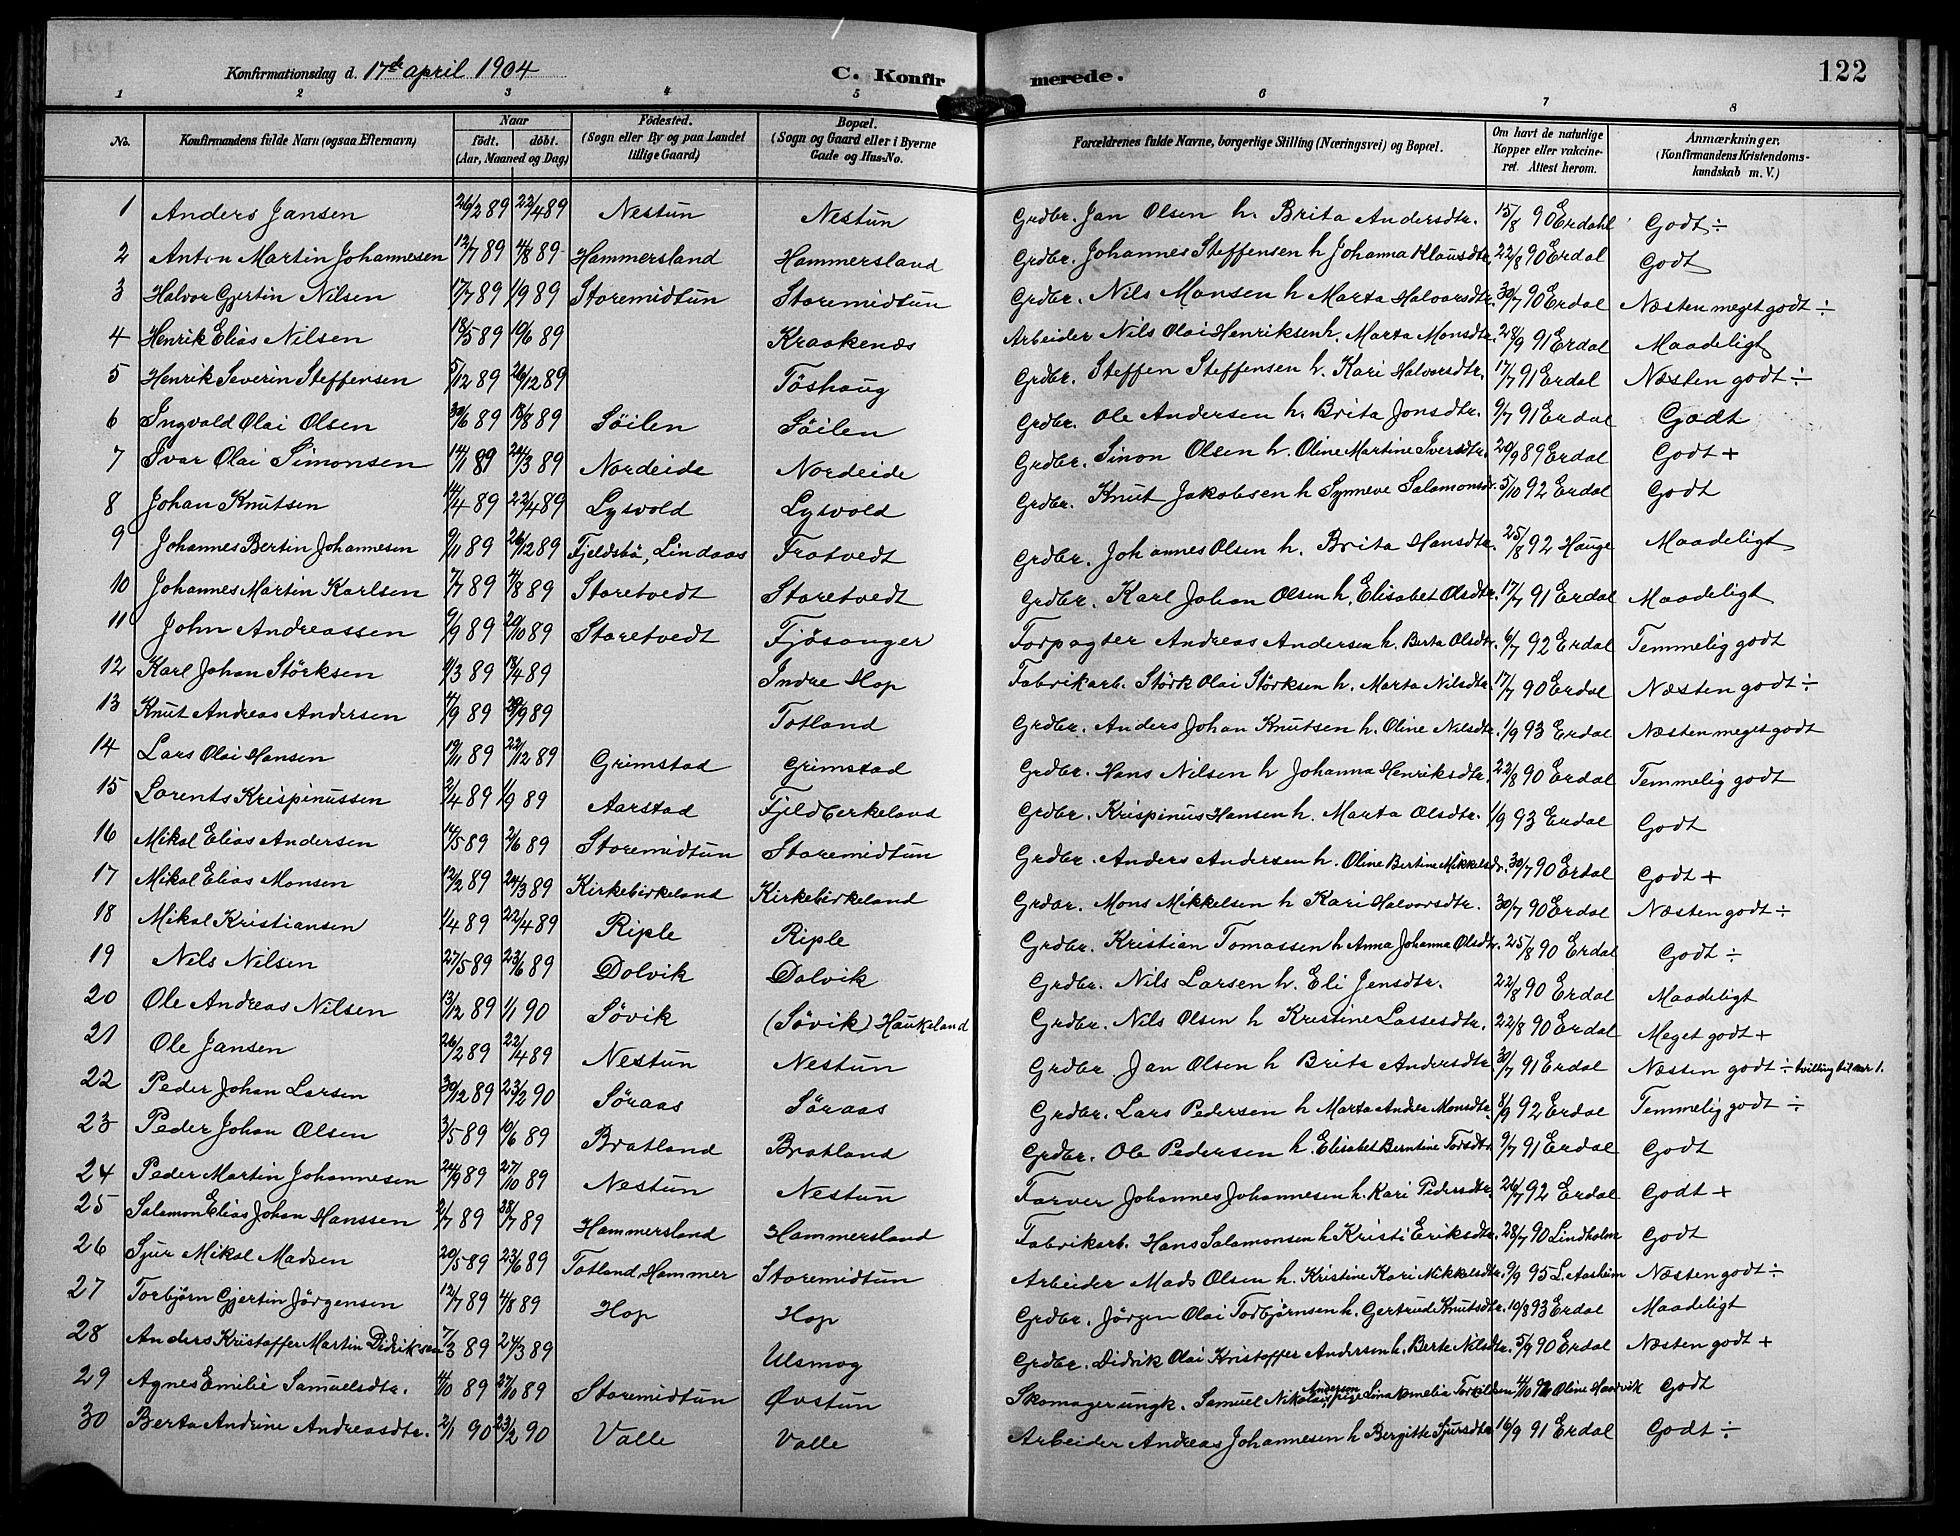 Konfirmationsdag d. 17de april 1904 C. Konfirmerede. 122
1 2 3 4 5 6 7 8
No. Konfirmandens fulde Navn (ogsaa Efternavn) Naar født. døbt. (Aar, Maaned og Dag) Fødested. (Sogn eller By og paa Landet tillige Gaard) Bopæl. (Sogn og Gaard eller i Byerne Gade og Hus-No. Forældrenes fulde Navne, borgerlige Stilling (Næringsvei) og Bopæl. Om havt de naturlige Kopper eller vakcineret. Attest herom. Anmærkninger, (Konfirmandens Kristendomskundskab m. V.)
1 Anders Jansen 26/2 89 22/4 89 Nestun Nestun Grdbr. Jan Olsen h. Brita Andersdtr. 15/8 90 Erdahl Godt ÷
2 Anton Martin Johannesen 12/7 89 4/8 89 Hammersland Hammersland Grdbr. Johannes Steffensen h Johanna Klausdtr. 22/8 90 Erdal Godt
3 Halvor Gjertin Nilsen 17/7 89 1/9 89 Storemidtun Storemidtun Grdbr. Nils Monsen h Marta Halvorsdtr. 30/7 90 Erdal Næsten meget godt ÷
4 Henrik Elias Nilsen 18/5 89 10/6 89 Kraakenæs Arbeider Nils Olai Henriksen h. Marta Monsdtr. 28/9 91 Erdal Maadeligt
5 Henrik Severin Steffensen 5/12 89 26/12 89 Tøshaug Grdbr. Steffen Steffensen h. Kari Halvorsdtr. 17/7 91 Erdal Næsten godt ÷
6 Ingvald Olai Olsen 30/6 89 18/8 89 Søilen Søilen Grdbr. Ole Andersen h. Brita Jonsdtr. 9/7 91 Erdal Godt
7 Ivar Olai Simonsen 14/1 89 24/3 89 Nordeide Nordeide Grdbr. Simon Olsen h. Oline Martine Iversdtr. 20/9 89 Erdal Godt +
8 Johan Knutsen 14/4 89 22/4 89 Lysvold Lysvold Grdbr. Knut Jakobsen h Synneve Salamonsdr. 5/10 92 Erdal Godt
9 Johannes Bertin Johannesen 9/11 89 26/12 89 Fjeldsbø, Lindaas Trotvedt Grdbr. Johannes Olsen h. Brita Hansdtr. 25/8 92 Hauge Maadeligt
10 Johannes Martin Karlsen 7/7 89 4/8 89 Storetvedt Storetvedt Grdbr. Karl Johan Olsen h. Elisabet Olsdtr. 17/7 91 Erdal Maadeligt
11 John Andreassen 9/9 89 20/10 89 Storetvedt Fjøsanger Forpagter Andreas Andersen h. Berta Olsdtr. 6/7 92 Erdal Temmelig godt
12 Karl Johan Størksen 11/3 89 18/4 89 Indre Hop Fabrikarb. Størk Olai Størksen h. Marta Nilsdtr. 17/7 90 Erdal Næsten godt ÷
13 Knut Andreas Andersen 4/9 89 29/9 89 Totland Grdbr. Anders Johan Knutsen h. Oline Nilsdtr. 1/9 93 Erdal Næsten meget godt
14 Lars Olai Hansen 19/11 89 22/12 89 Grimstad Grimstad Grdbr. Hans Nilsen h Johanna Henriksdtr. 22/8 90 Erdal Temmelig godt
15 Lorents Krispinussen 3/4 89 1/9 89 Aarstad Fjeldberkeland Grdbr. Krispinus Hansen h. Marta Olsdtr. 1/9 93 Erdal Godt
16 Mikal Elias Andersen 14/5 89 2/6 89 Storemidtun Storemidtun Grdbr. Anders Andersen h. Oline Bertine Mikkelsdr. 30/7 90 Erdal Godt +
17 Mikal Elias Monsen 12/2 89 24/3 89 Kirkebirkeland Kirkebirkeland Grdbr. Mons Mikkelsen h Kari Halvorsdtr. 30/7 90 Erdal Næsten godt ÷
18 Mikal Kristiansen 1/4 89 22/4 89 Riple Riple Grdbr. Kristian Tomassen h Anna Johanna Olsdtr. 25/8 90 Erdal Godt ÷
19 Nels Nilsen 27/5 89 23/6 89 Dolvik Dolvik Grdbr. Nils Larsen h. Eli Jensdtr. 22/8 90 Erdal Maadeligt
20 Ole Andreas Nilsen 13/12 89 1/1 90 Søvik (Søvik) Haukeland Grdbr. Nils Olsen h Kristine Lassesdtr. 22/8 90 Erdal Meget godt +
21 Ole Jansen 26/2 89 22/4 89 Nestun Nestun Grdbr Jan Olsen h Brita Andersdtr. 30/7 91 Erdal Næsten godt ÷ tvilling til nr 1.
22 Peder Johan Larsen 30/12 89 23/2 90 Søraas Søraas Grdbr. Lars Pedersen h Marta Andrea Monsdtr. 8/9 92 Erdal Temmelig godt ÷
23 Peder Johan Olsen 3/5 89 10/6 89 Bratland Bratland Grdbr. Ole Pedersen h. Elisabet Berntine Torsdtr. 9/7 91 Erdal Godt
24 Peder Martin Johannesen 24/9 89 27/10 89 Nestun Nestun Farver Johannes Johannesen h. Kari Pedersdtr. 26/7 92 Erdal Godt +
25 Salamon Elias Johan Hanssen 2/7 89 28/7 89 Hammersland Hammersland Fabrikarb. Hans Salamonsen h Kristi Eriksdtr. 28/7 90 Lindholm Godt
26 Sjur Mikal Madsen 20/5 89 23/6 89 Totland, Hammer Storemidtun Arbeider Mads Olsen h. Kristine Kari Mikkelsdtr. 9/9 95 L. Aasheim Næsten godt ÷
27 Torbjørn Gjertin Jørgensen 12/7 89 4/8 89 Hop Hop Grdbr. Jørgen Olai Torbjørnsen h. Gertrud Knutsdtr. 10/8 93 Erdal Maadeligt
28 Anders Kristoffer Martin Didriksen 7/3 89 24/3 89 Ulsmog Grdbr. Didrik Olai Kristoffer Andersen h. Berte Nilsdtr. 5/9 90 Erdal Næsten godt +
29 Agnes Emilie Samuelsdtr. 4/10 89 27/10 89 Storemidtun Øvstun Skomager ungk. Samuel Nikolai Andersen, pige Lina Kornelia Torkildsen 4/10 92 Oline Haarvik Godt
30 Berta Andrine Andreasdtr. 2/1 90 23/2 90 Valle Valle Arbeider Andreas Johannesen h Bergitte Sjursdtr. 16/9 91 Erdal Godt ÷